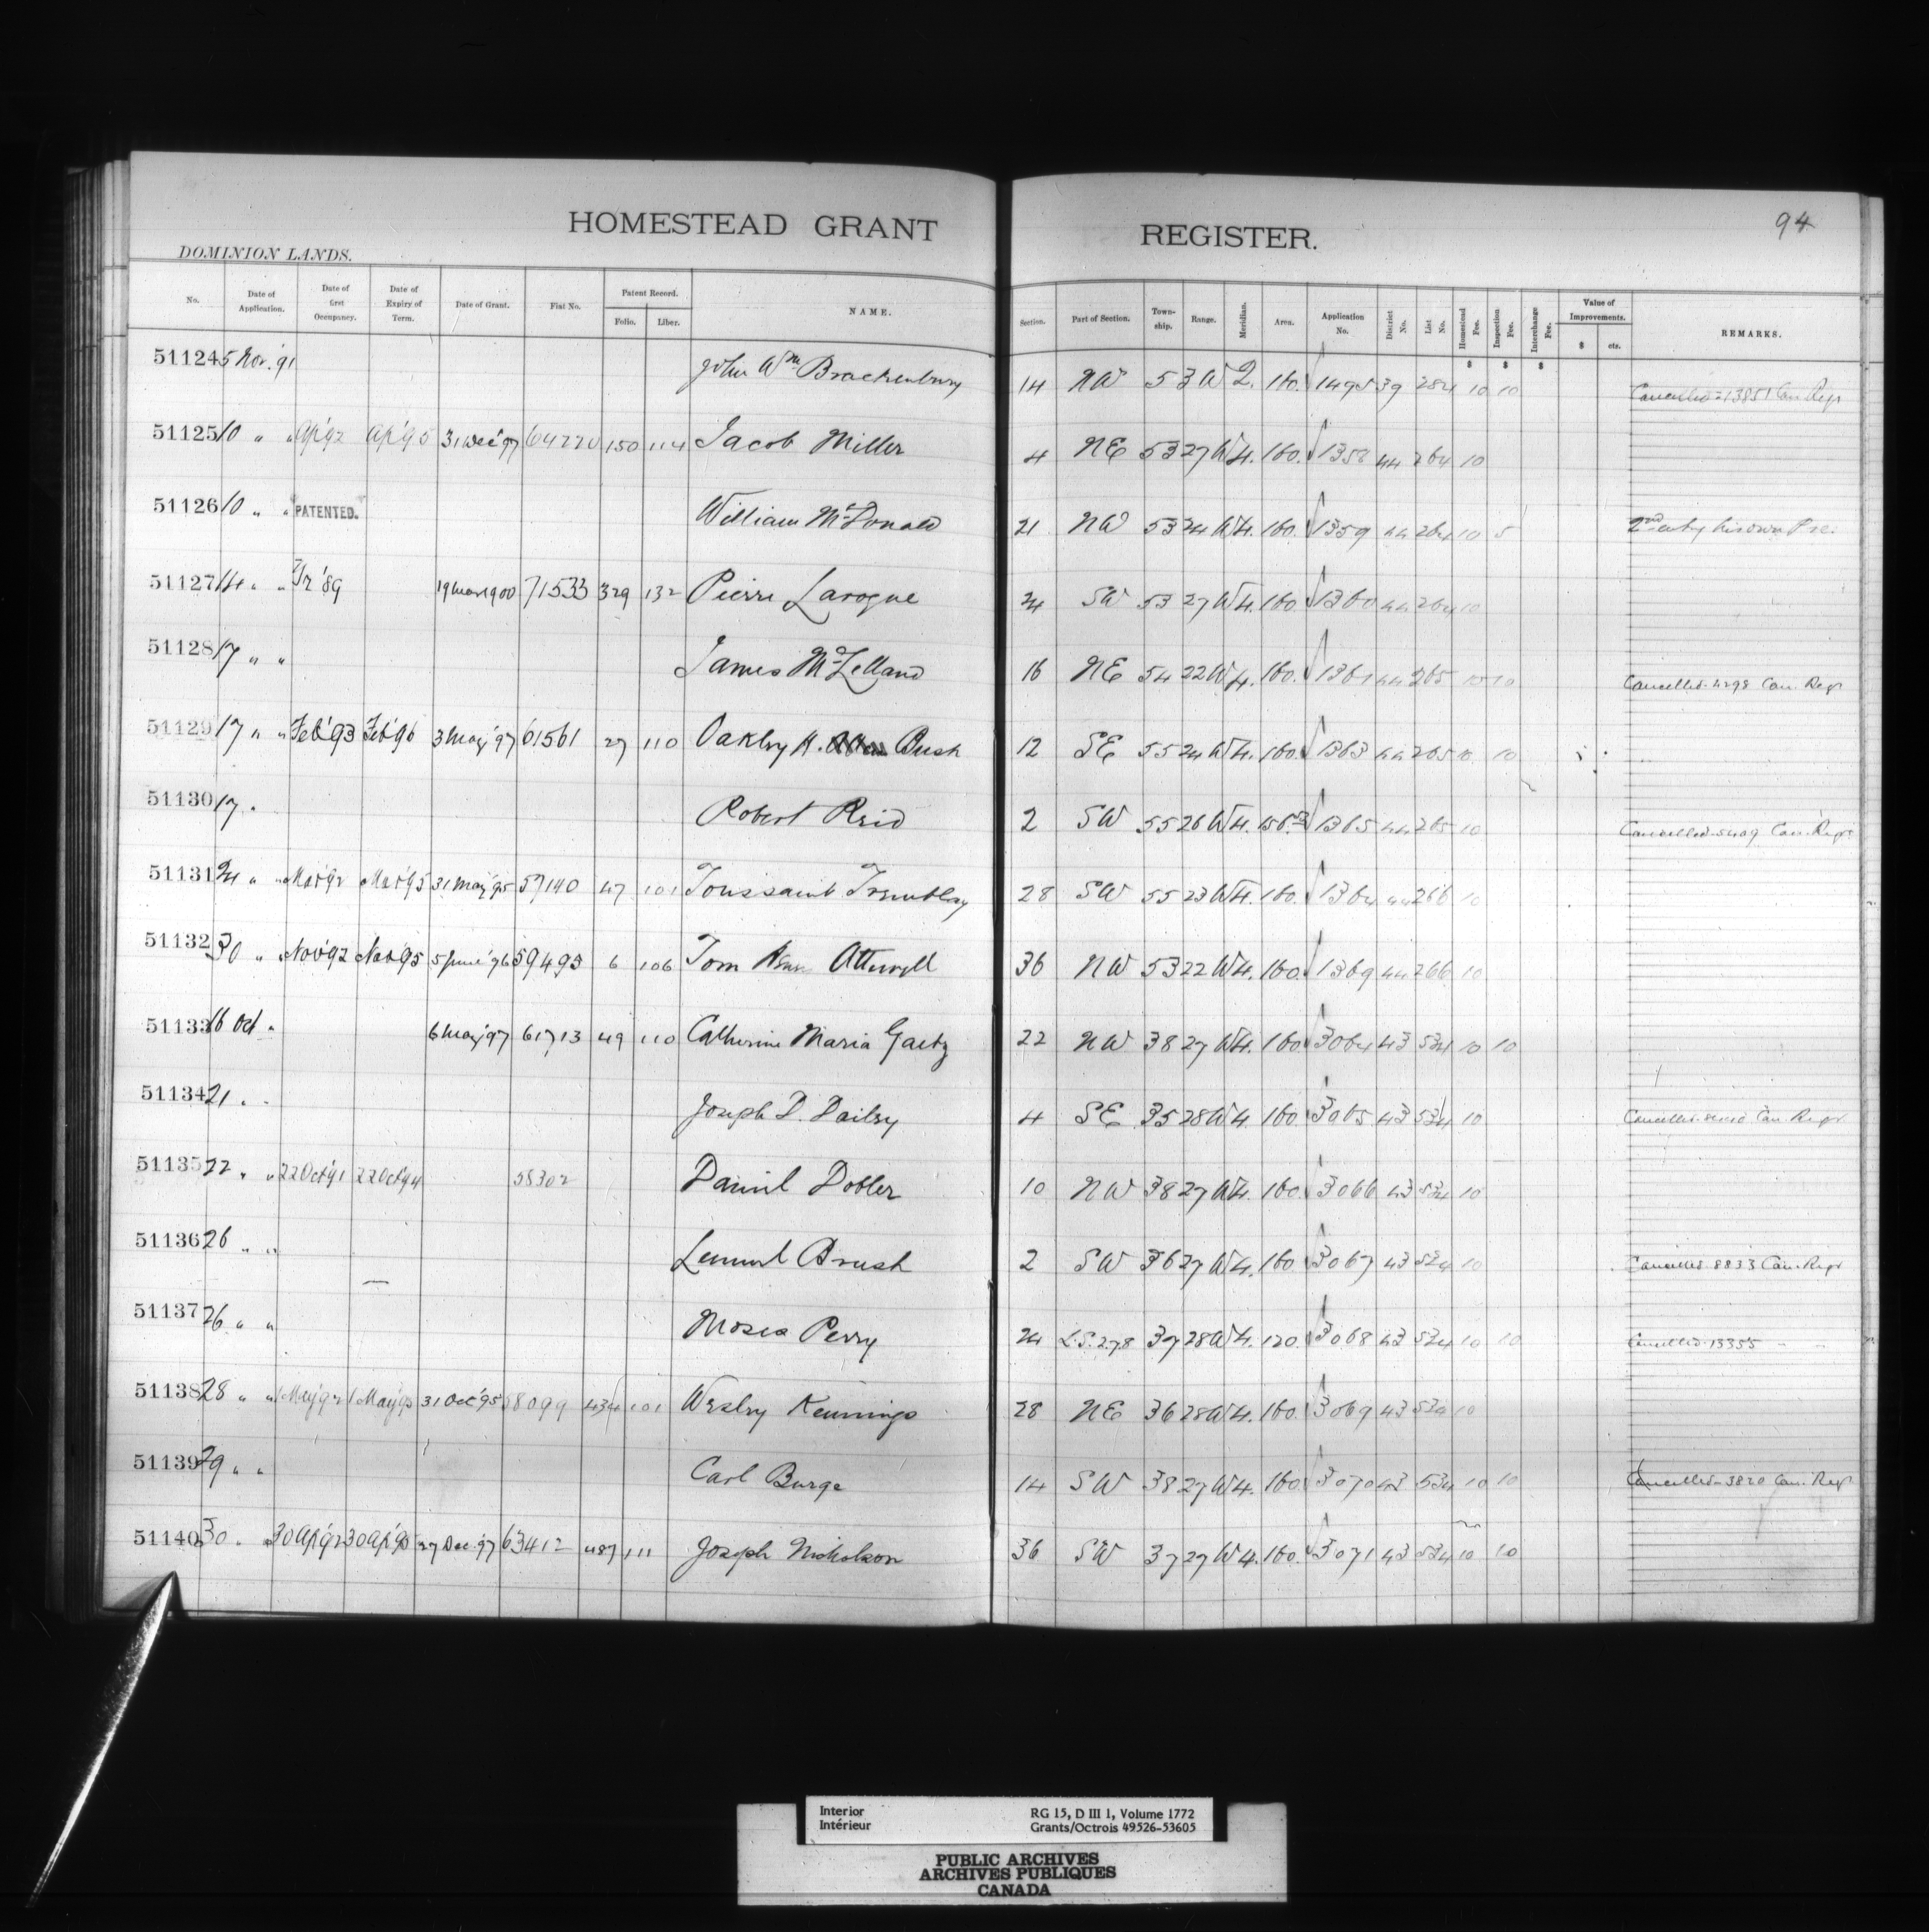 HOMESTEAD GRANT REGISTER.
94
DOMINION LANDS.
No. Date of Application. Date of first Occupancy. Date of Expiry of Term. Date of Grant. Fiat No. Patent Record. Folio. Liber. NAME. Section. Part of Section. Township. Range. Meridian. Area. Application No. District No. List No. Homestead Fee. Inspection Fee. Interchange Fee. Value of Improvements. $ cts. REMARKS.
$ $ $
51124 5 Nov. '91 John Wm Brackenbury 14 NW 5 3 W 2. 160. 1495 39 284 10 10 Cancelled 13851 Can. Regr
51125 10 " " Ap '92 Ap '95 31 Dec '97 64220 150 114 Jacob Miller 4 NE 53 27 W 4. 160. 1358 44 264 10
51126 10 " " PATENTED. William McDonald 21 NW 53 24 W 4. 160. 1359 44 264 10 5 2nd entry his own Pre.
51127 14 " " '89 19 Mar 1900 71533 329 132 Pierre Laroque 24 SW 53 27 W 4. 160. 1360 44 264 10
51128 17 " " James McLelland 16 NE 54 22 W 4. 160. 1361 44 265 10 10 Cancelled 4298 Can. Regr
51129 17 " " Feb '93 Feb '96 3 May '97 61561 27 110 Oakley H. Bush 12 SE 55 24 W 4. 160. 1363 44 265 10 10
51130 17 " Robert Reid 2 SW 55 26 W 4. 1365 44 265 10 Cancelled 5409 Can. Regr
51131 24 " " Mar '92 Mar '95 31 May '95 57140 47 101 Toussaint Tremblay 28 SW 55 23 W 4. 160. 1364 44 266 10
51132 30 " " Nov '92 Nov '95 5 June '96 59493 6 106 Tom Attewell 36 NW 53 22 W 4. 160. 1369 44 266 10
51133 16 Oct " 6 May '97 61713 49 110 Catherine Maria Gaetz 22 NW 38 27 W 4. 160. 3064 43 534 10 10
51134 21 " " Joseph D. Dailey 4 SE 35 28 W 4. 160. 3065 43 534 10 Cancelled Can. Regr
51135 22 " " 22 Oct '91 22 Oct '94 58302 Daniel Dobler 10 NW 38 27 W 4. 160. 3066 43 534 10
51136 26 " " Lemuel Brush 2 SW 36 27 W 4. 160. 3067 43 534 10 Cancelled 8833 Can. Regr
51137 26 " " Moses Perry 24 L.S. 2.7.8 37 28 W 4. 120. 3068 43 534 10 10 Cancelled 13355 " "
51138 28 " " 1 May '92 1 May '95 31 Oct '95 58099 434 101 Wesley Kennings 28 NE 36 28 W 4. 160. 3069 43 534 10
51139 29 " " Carl Burge 14 SW 38 27 W 4. 160. 3070 43 534 10 10 Cancelled 3820 Can. Regr
51140 30 " " 30 Ap '92 30 Ap '95 27 Dec '97 63412 487 111 Joseph Nicholson 36 SW 37 27 W 4. 160. 3071 43 534 10 10
Interior RG 15, D III 1, Volume 1772
Intérieur Grants/Octrois 49526-53605
PUBLIC ARCHIVES
ARCHIVES PUBLIQUES
CANADA